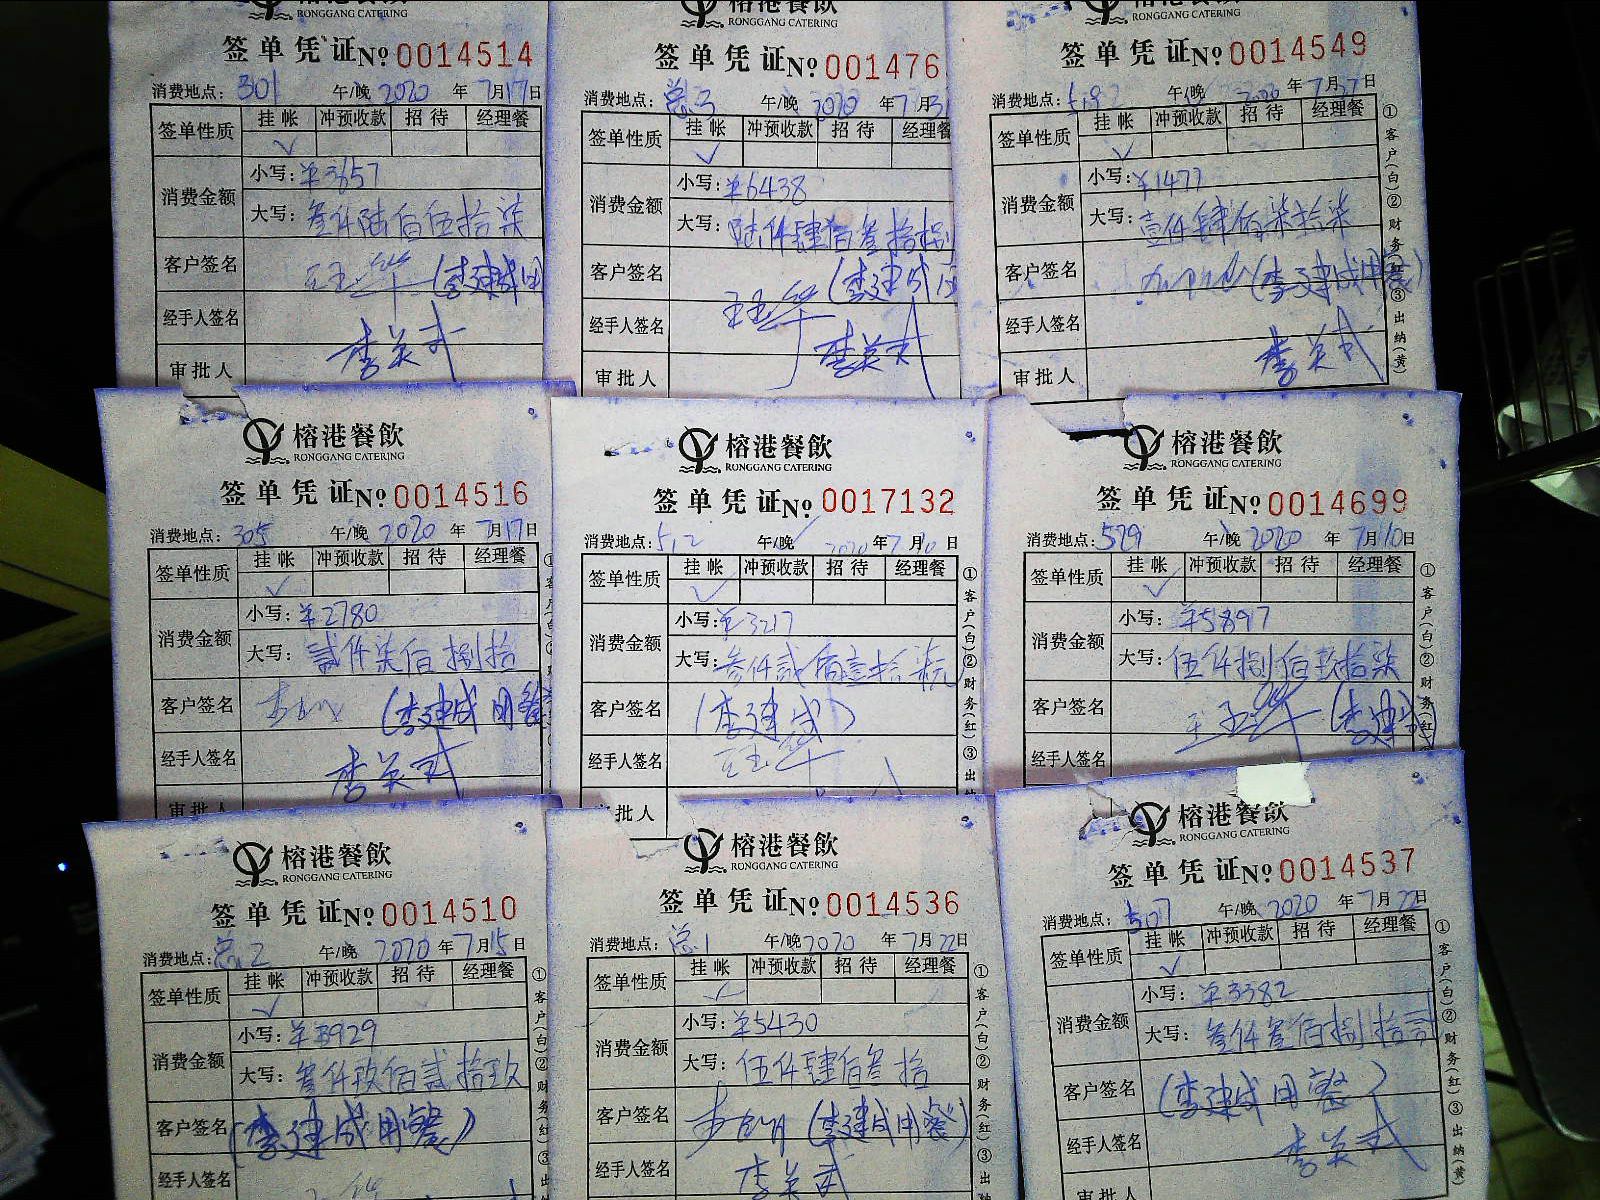 RONGGANG CATERING
签单凭证№ 0014514
消费地点: 301 午/晚 2020 年 7月17日
签单性质 挂帐 冲预收款 招待 经理餐
✓
消费金额 小写: ¥3657
大写: 叁仟陆佰伍拾柒
客户签名 (李建成用
经手人签名
李英武
审批人
RONGGANG CATERING
签单凭证№ 001476
消费地点: 总3 午/晚 2020 年7月31
签单性质 挂帐 冲预收款 招待 经理餐
✓
消费金额 小写: ¥6438
大写: 陆仟肆佰叁拾捌
客户签名 (李建成用
经手人签名 王玉华
李英武
审批人
RONGGANG CATERING
签单凭证№ 0014549
消费地点: 午/晚 2020 年7月27日
签单性质 挂帐 冲预收款 招待 经理餐
✓
消费金额 小写: ¥1477
大写: 壹仟肆佰柒拾柒
客户签名 (李建成用餐)
经手人签名
李英武
审批人
①客户(白)②财务(红)③出纳(黄)
榕港餐飲
RONGGANG CATERING
签单凭证№ 0014516
消费地点: 305 午/晚 2020 年 7月17日
签单性质 挂帐 冲预收款 招待 经理餐
✓
消费金额 小写: ¥2780
大写: 贰仟柒佰捌拾
客户签名 (李建成用餐
经手人签名 李英武
审批人
榕港餐飲
RONGGANG CATERING
签单凭证№ 0017132
消费地点: 512 午/晚 2020 年7月10日
签单性质 挂帐 冲预收款 招待 经理餐
✓
消费金额 小写: ¥3217
大写: 叁仟贰佰壹拾柒元
客户签名 (李建成)
经手人签名 王玉华
审批人
①客户(白)②财务(红)③出纳
榕港餐飲
RONGGANG CATERING
签单凭证№ 0014699
消费地点: 529 午/晚 2020 年 7月10日
签单性质 挂帐 冲预收款 招待 经理餐
✓
消费金额 小写: ¥5897
大写: 伍仟捌佰玖拾柒
客户签名 王玉华 (李建成
经手人签名
①客户(白)②财务(红)
榕港餐飲
RONGGANG CATERING
签单凭证№ 0014510
消费地点: 总2 午/晚 2020 年7月15日
签单性质 挂帐 冲预收款 招待 经理餐
✓
消费金额 小写: ¥3929
大写: 叁仟玖佰贰拾玖
客户签名 (李建成用餐)
经手人签名
①客户(白)②财务(红)③出
榕港餐飲
RONGGANG CATERING
签单凭证№ 0014536
消费地点: 总1 午/晚 2020 年7月22日
签单性质 挂帐 冲预收款 招待 经理餐
✓
消费金额 小写: ¥5430
大写: 伍仟肆佰叁拾
客户签名 (李建成用餐)
经手人签名 李英武
①客户(白)②财务(红)③出纳
榕港餐飲
RONGGANG CATERING
签单凭证№ 0014537
消费地点: 507 午/晚 2020 年7月22日
签单性质 挂帐 冲预收款 招待 经理餐
✓
消费金额 小写: ¥3382
大写: 叁仟叁佰捌拾贰
客户签名 (李建成用餐)
经手人签名 李英武
①客户(白)②财务(红)③出纳(黄)